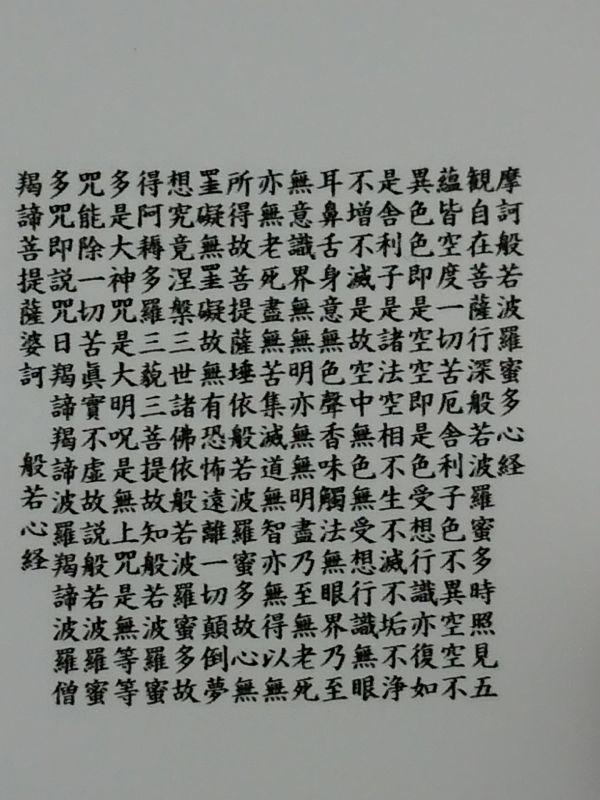 摩訶般若波羅蜜多心経
観自在菩薩行深般若波羅蜜多時照見五
蘊皆空度一切苦厄舎利子色不異空空不
異色色即是空空即是色受想行識亦復如
是舎利子是諸法空相不生不滅不垢不浄
不増不滅是故空中無色無受想行識無眼
耳鼻舌身意無色聲香味觸法無眼界乃至
無意識界無無明亦無無明盡乃至無老死
亦無老死盡無苦集滅道無智亦無得以無
所得故菩提薩埵依般若波羅蜜多故心無
罣礙無罣礙故無有恐怖遠離一切顛倒夢
想究竟涅槃三世諸佛依般若波羅蜜多故
得阿耨多羅三藐三菩提故知般若波羅蜜
多是大神咒是大明呪是無上咒是無等等
咒能除一切苦眞實不虚故説般若波羅蜜
多咒即説咒日羯諦羯諦波羅羯諦波羅僧
羯諦菩提薩婆訶 般若心経